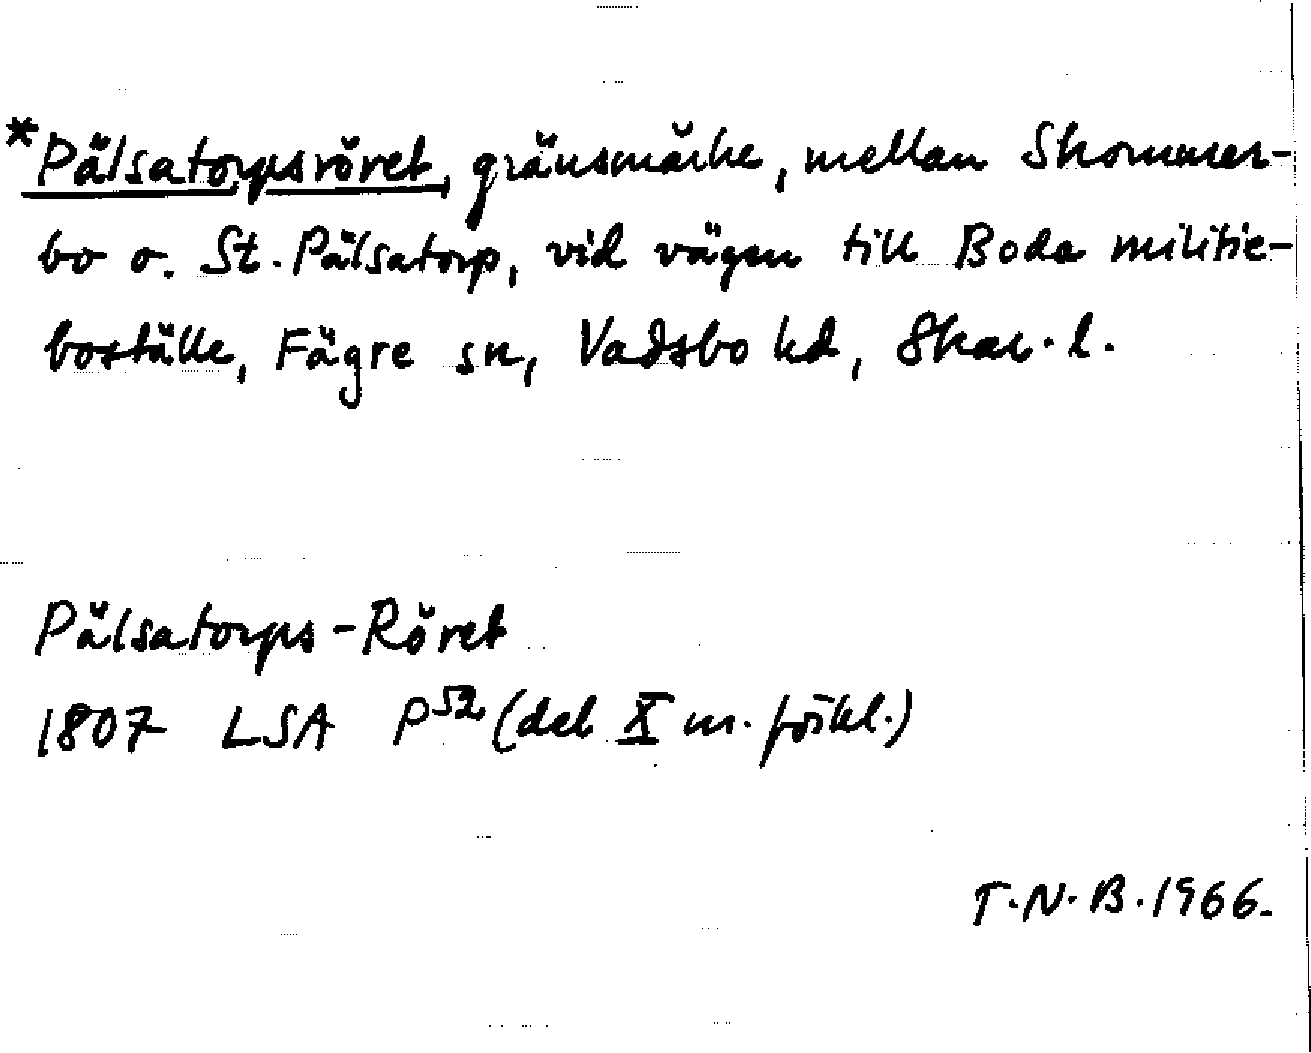 *Pälsatorpsröret, gränsmärke, mellan Skommer-
bo o. St. Pälsatorp, vid vägen till Boda militie-
boställe, Fägre sn, Vadsbo hd, Skar. l.
Pälsatorps-Röret
1807 LSA P52 (del X m. förkl.)
T.N.B. 1966.